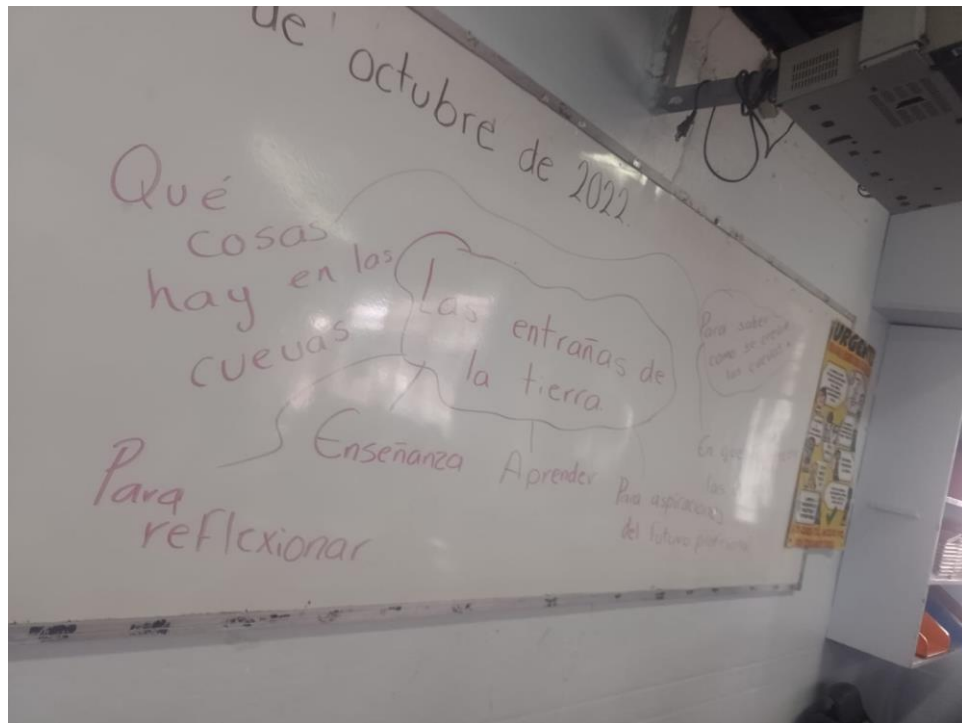 de
octubre de 2022
Qué
cosas
hay en las
cuevas
Las entrañas de
la tierra
Para saber
como se
las cuevas
Enseñanza
Aprender
Para
reflexionar
Para aspiraciones
del futuro
En que
las
¡URGENTE!